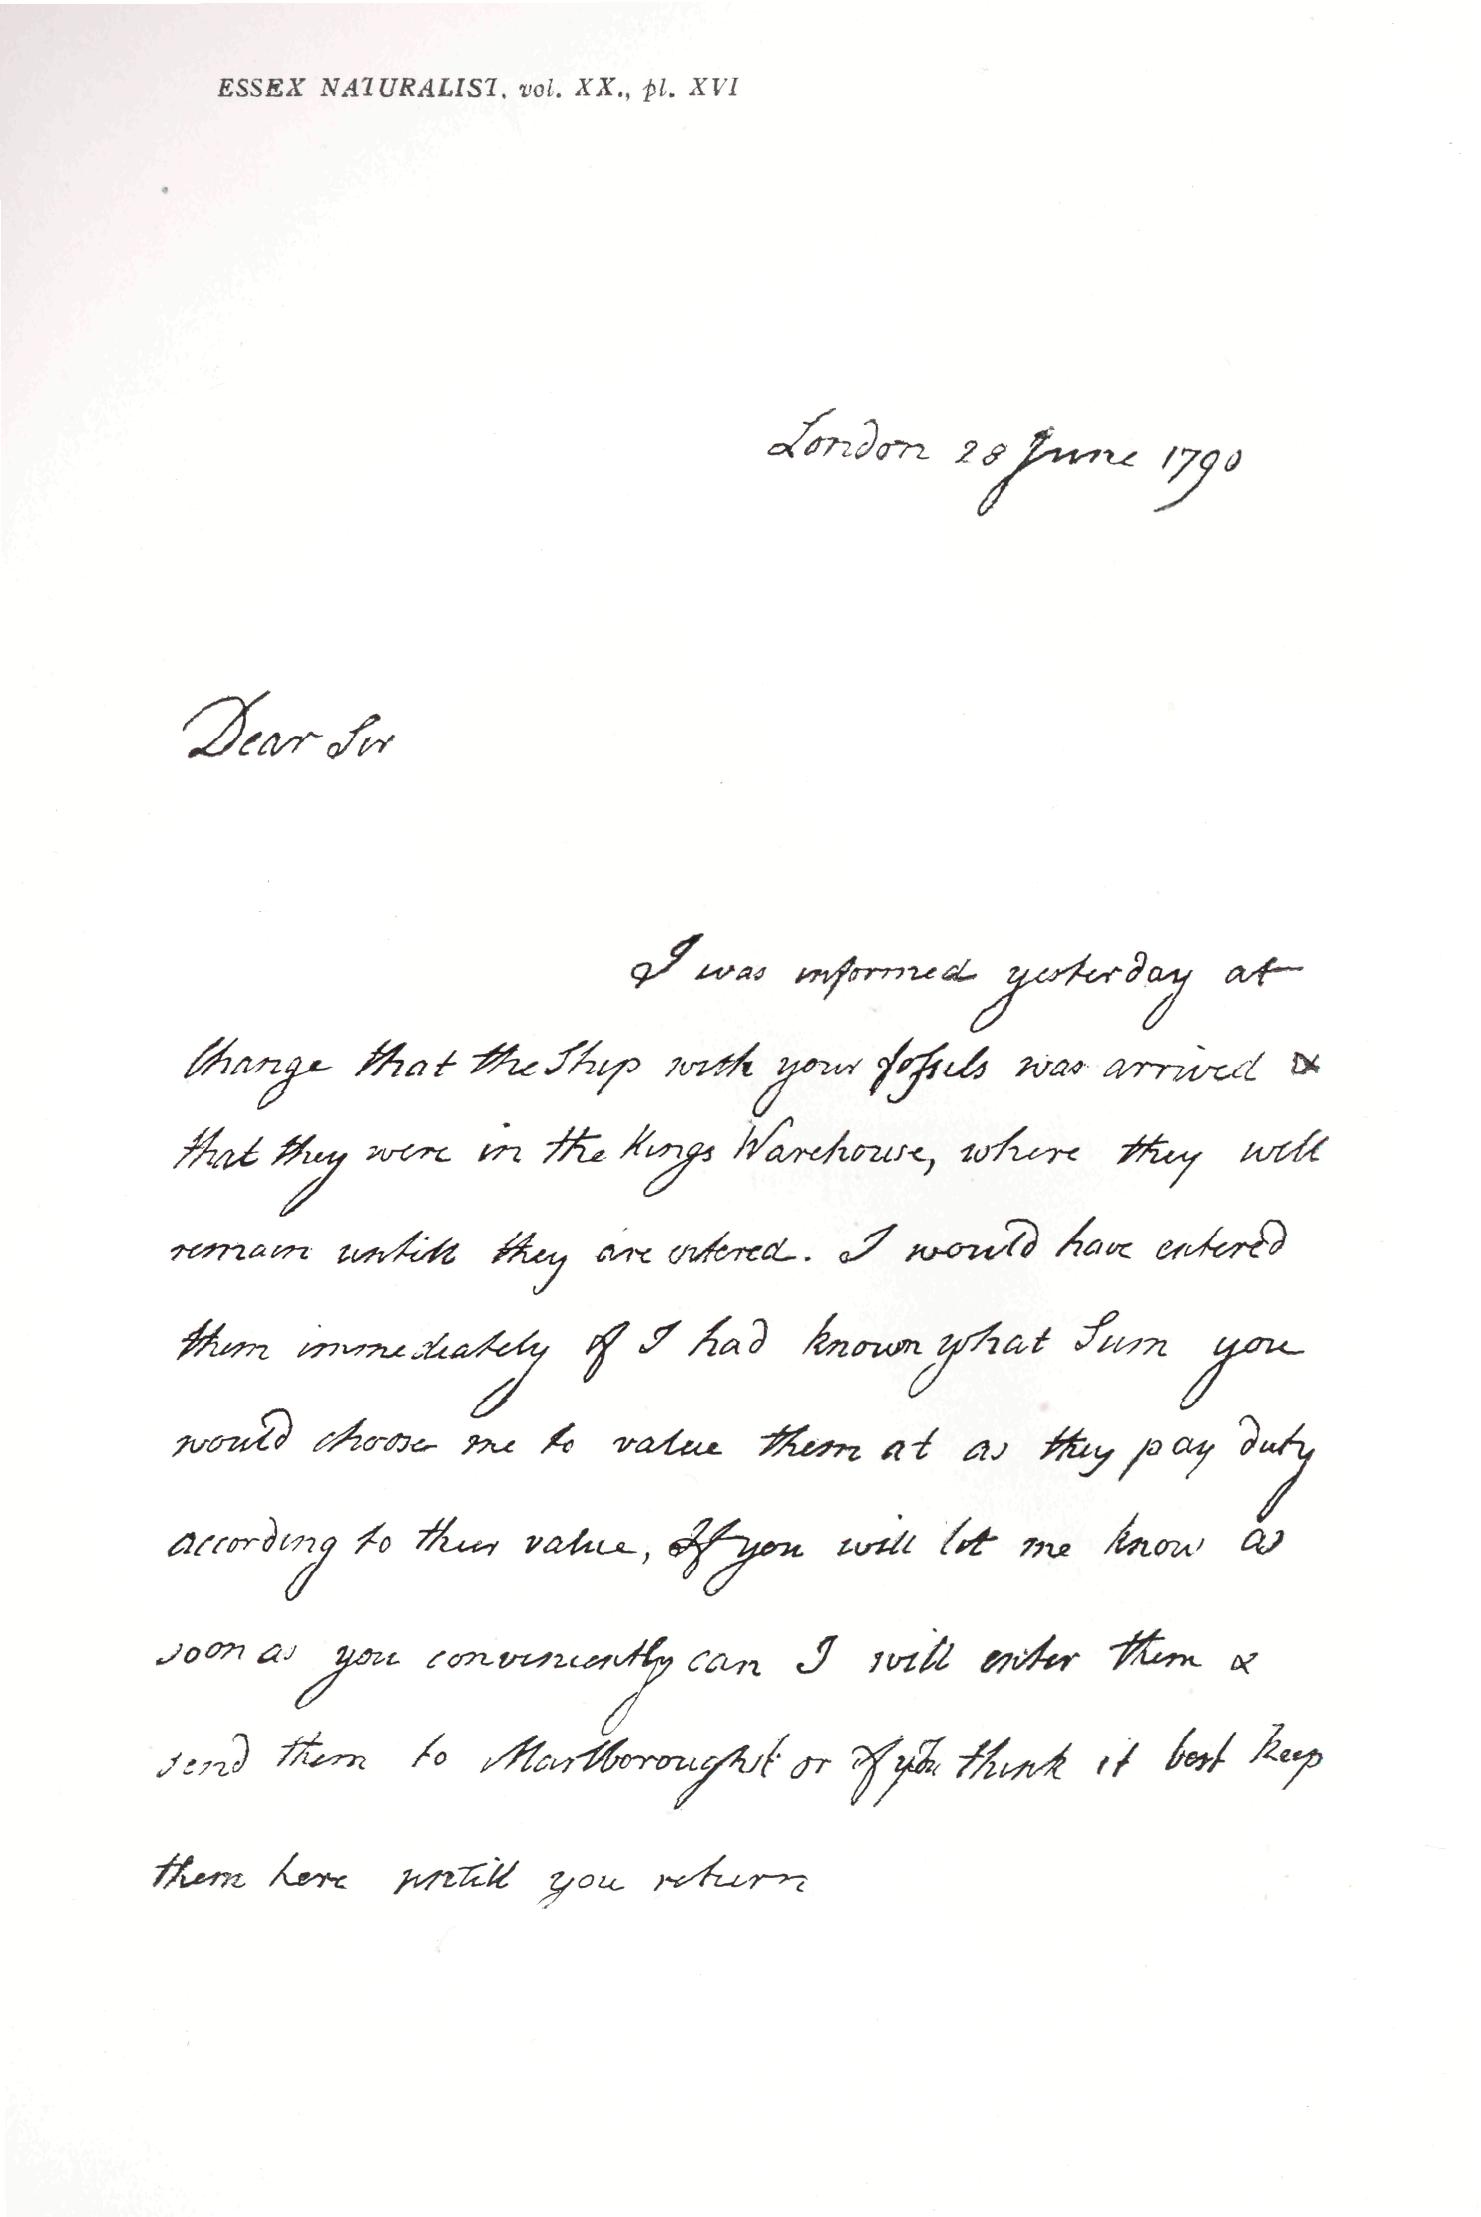 ESSEX NATURALIST, vol. XX., pl. XVI
London 28 June 1790
Dear Sir
I was informed yesterday at
Change that the Ship with your fossels was arrived &
that they were in the Kings Warehouse, where they will
remain untill they are entered. I would have entered
them immediately if I had known what Sum you
would choose me to value them at as they pay duty
according to their value, If you will let me know as
soon as you conveniently can I will enter them &
send them to Marlborough St or if you think it best keep
them here untill you return